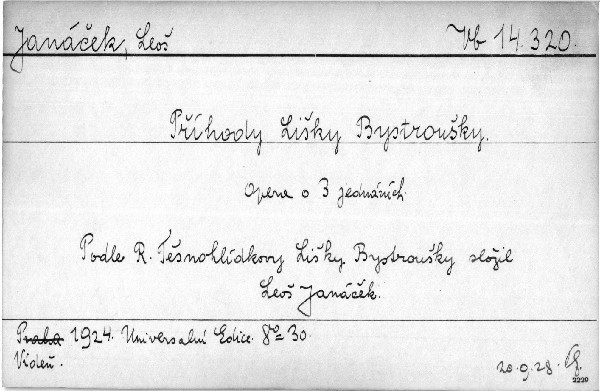 Janáček, Leoš Vb 14.320.
Příhody Lišky Bystroušky.
Opera o 3 jednáních.
Podle R. Těsnohlídkovy Lišky Bystroušky složil
Leoš Janáček.
Praha 1924. Universalní Edice. 8º 30.
Videň.
20.9.28.
2220